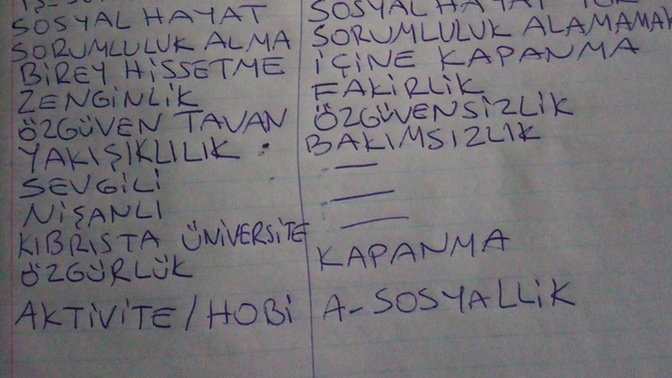 SOSYAL HAYAT
SORUMLULUK ALMA
BİREY HİSSETME
ZENGİNLİK
ÖZGÜVEN TAVAN
YAKIŞIKLILIK
SEVGİLİ
NİŞANLI
KIBRISTA ÜNİVERSİTE
ÖZGÜRLÜK
AKTİVİTE / HOBİ
SOSYAL HAYAT YOK
SORUMLULUK ALAMAMAK
İÇİNE KAPANMA
FAKİRLİK
ÖZGÜVENSİZLİK
BAKIMSIZLIK
KAPANMA
A-SOSYALLİK